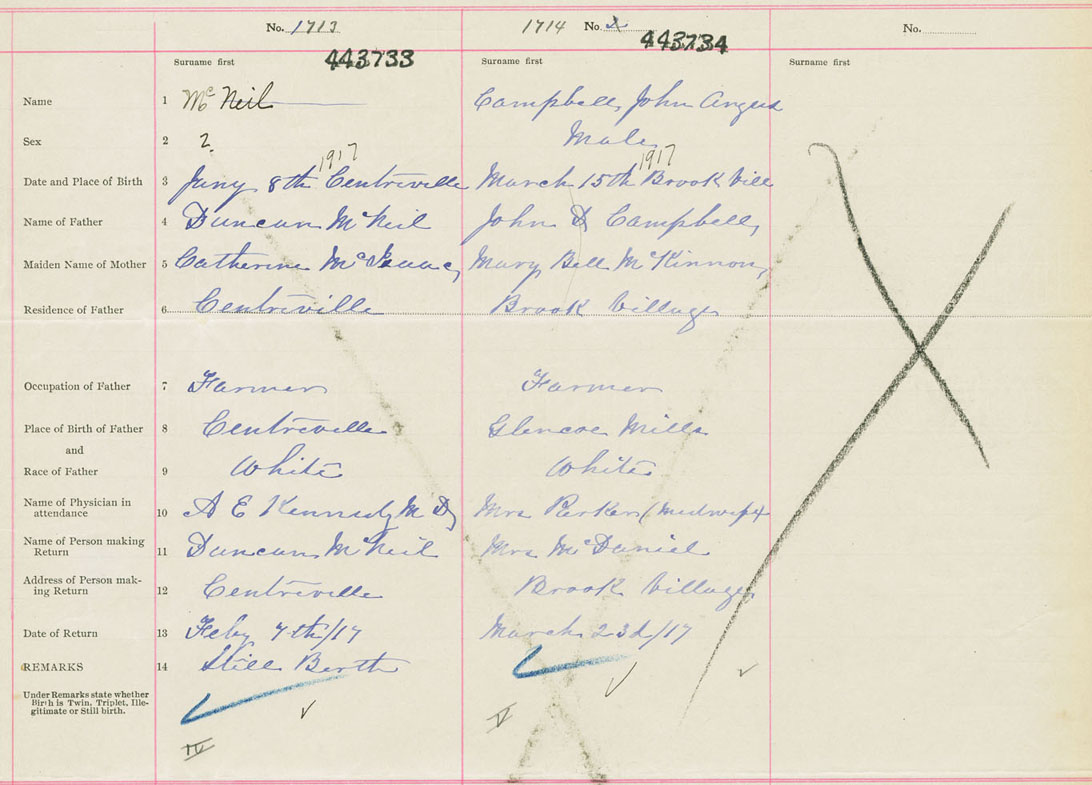 No. 1713 1714 No. No.
443733 443734
Surname first Surname first Surname first
Name 1 McNeil Campbell, John Angus
Sex 2 ?. Male
1917 1917
Date and Place of Birth 3 Jany 8th Centreville March 15th Brook Vill
Name of Father 4 Duncan McNeil John D Campbell,
Maiden Name of Mother 5 Catherine McIsaac, Mary Bell McKinnon,
Residence of Father 6 Centreville Brook Village
Occupation of Father 7 Farmer Farmer
Place of Birth of Father 8 Centreville Glencoe Mills
and
Race of Father 9 White White
Name of Physician in
attendance 10 A E Kennedy M D, Mrs Parker (midwife
Name of Person making
Return 11 Duncan McNeil Mrs McDaniel
Address of Person mak-
ing Return 12 Centreville Brook Village
Date of Return 13 Feby 7th/17 March 23d/17
REMARKS 14 Still Berth
Under Remarks state whether
Birth is Twin, Triplet, Ille-
gitimate or Still birth.
IV V